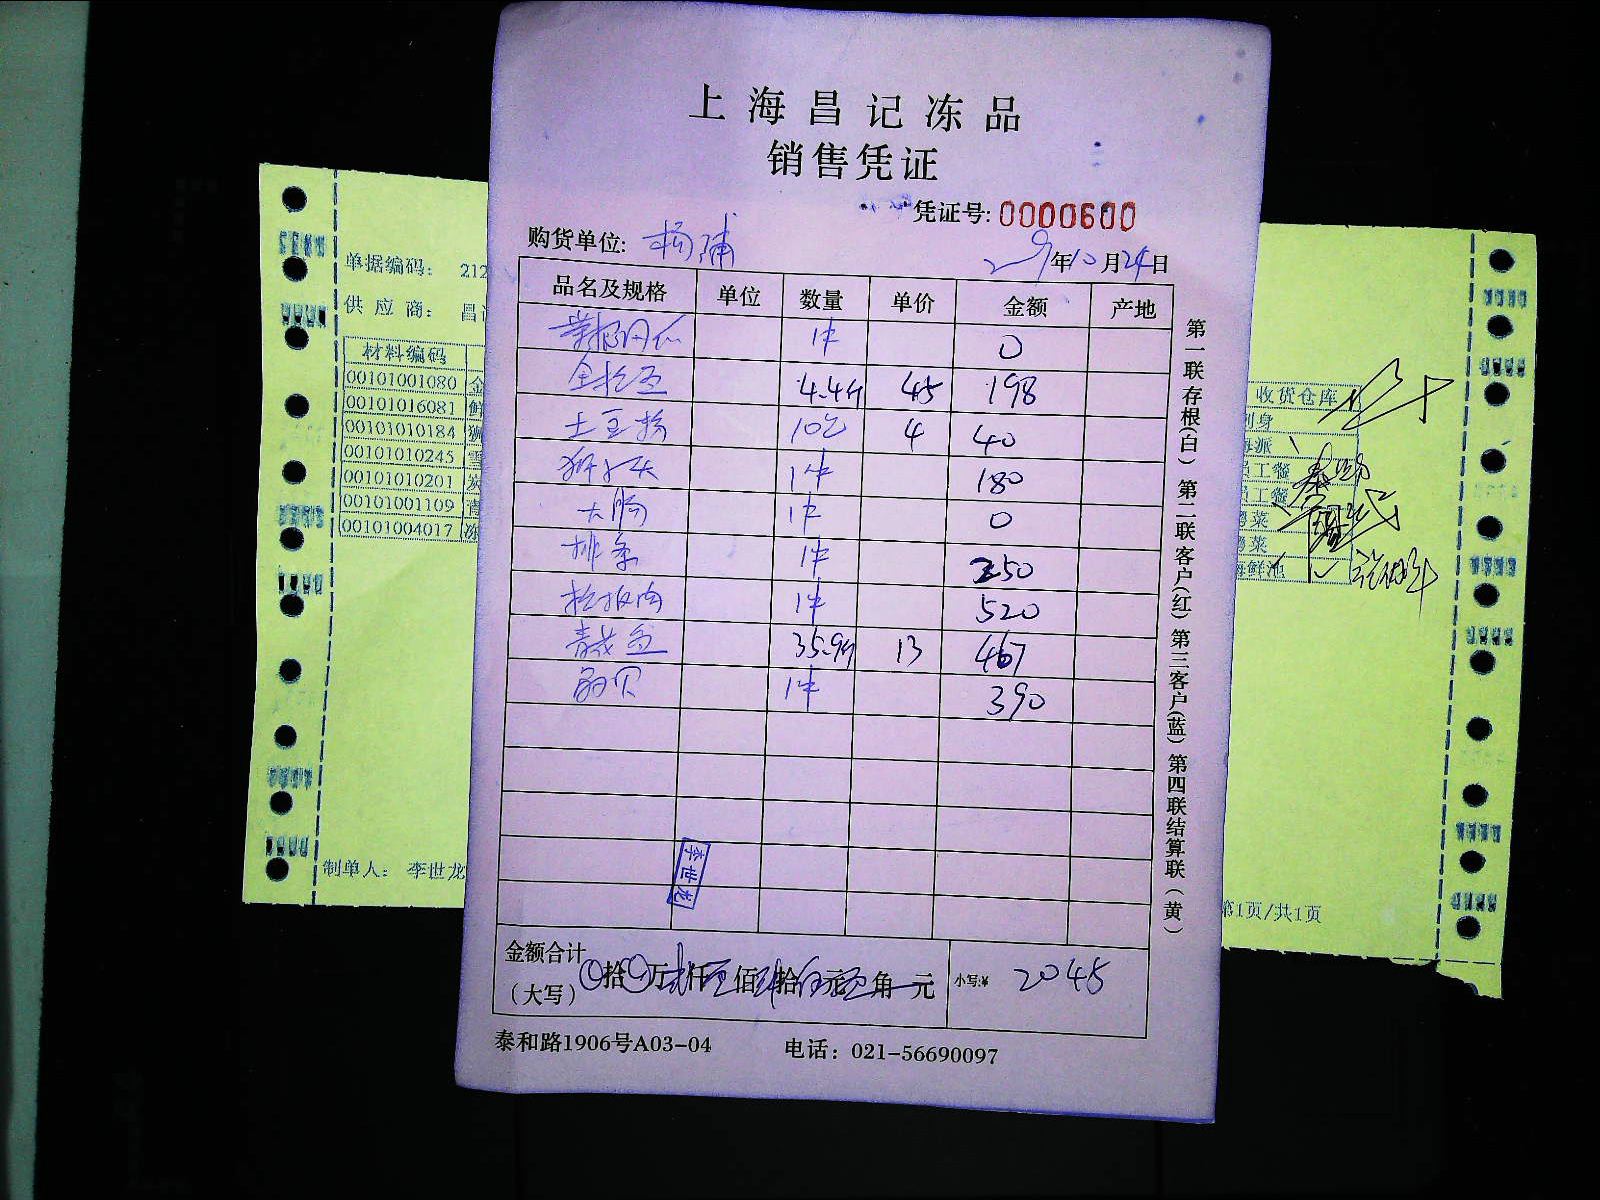 上海昌记冻品
销售凭证
凭证号: 0000600
购货单位: 杨浦
年10月24日
品名及规格 单位 数量 单价 金额 产地
1件 0
4.4斤 45 198
土豆粉 10包 4 40
狮子头 1件 180
大肠 1件 0
排条 1件 250
1件 520
35.9斤 13 467
扇贝 1件 390
李世龙
金额合计
(大写) 拾 万 仟 佰 拾 元 角 元 小写:¥ 2045
泰和路1906号A03-04 电话: 021-56690097
第一联存根(白) 第二联客户(红) 第三客户(蓝) 第四联结算联(黄)
单据编码: 212
供应商: 昌
材料编码
00101001080 金
00101016081
00101010184 狮
00101010245 雪
00101010201
00101001109 青
00101004017 冻
制单人: 李世龙
收货仓库
员工餐
员工餐
粤菜
粤菜
海鲜池
第1页/共1页